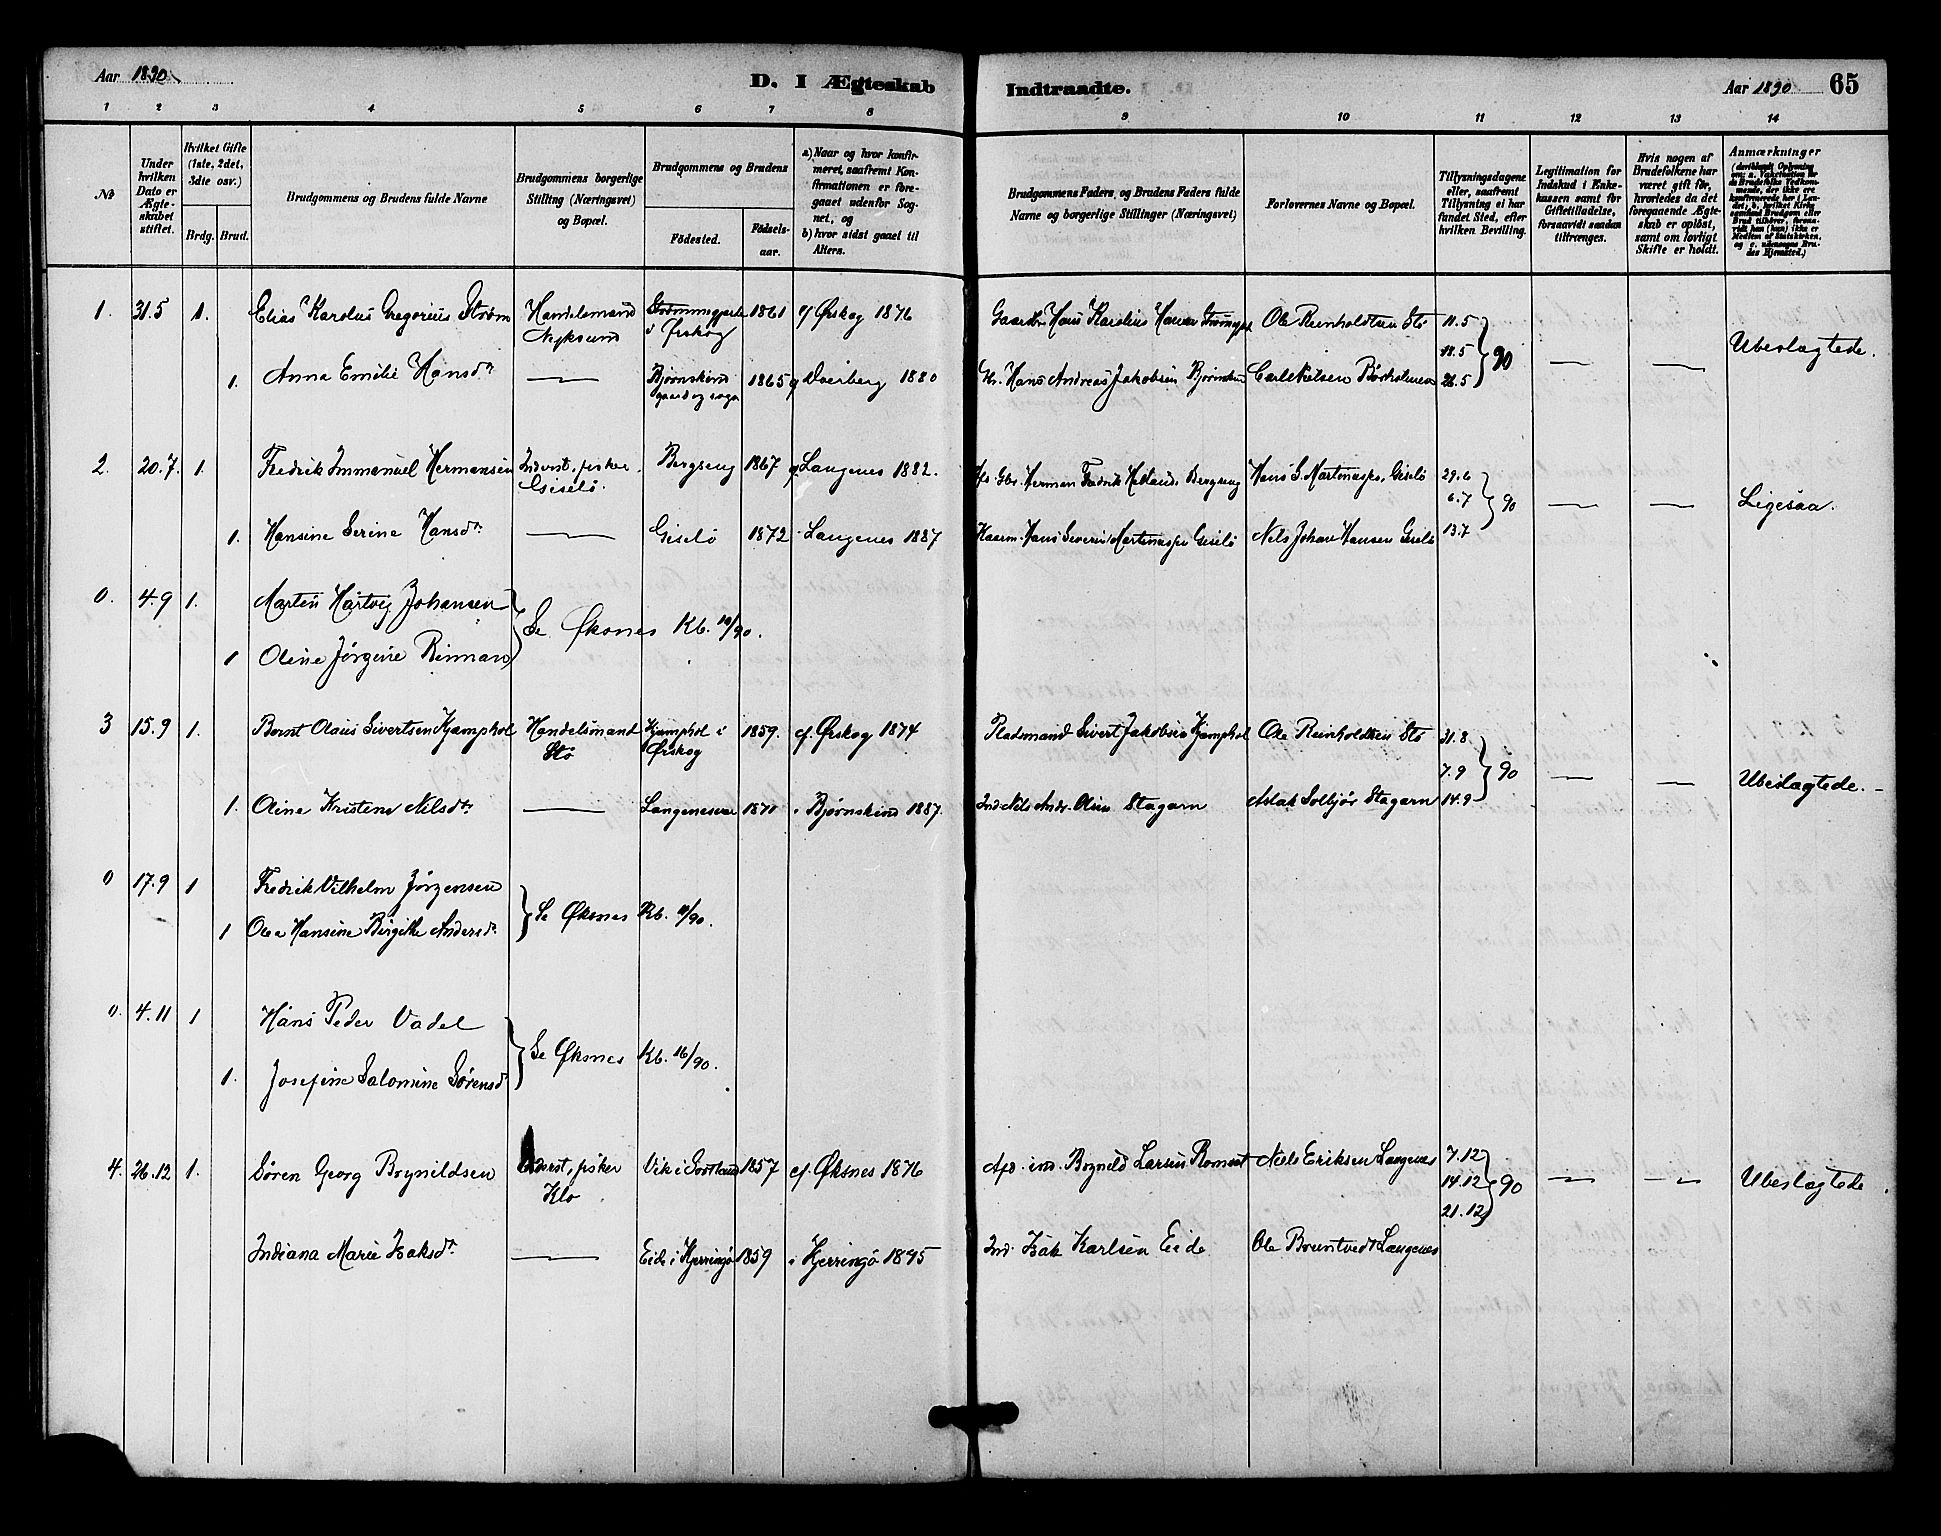 Aar 1890
D. I Ægteskab Indtraadte.
Aar 1890 65
1 2 3 4 5 6 7 8 9 10 11 12 13 14
No
Under hvilken Dato er Ægteskabet stiftet.
Hvilket Gifte (1ste, 2det, 3die osv.)
Brdg. Brud.
Brudgommens og Brudens fulde Navne
Brudgommens borgerlige Stilling (Næringsvei) og Bopæl.
Brudgommens og Brudens
Fødested. Fødselsaar.
a) Naar og hvor konfirmeret, saafremt Konfirmationen er foregaaet udenfor Sognet, og
b) hvor sidst gaaet til Alters.
Brudgommens Faders og Brudens Faders fulde Navne og borgerlige Stillinger (Næringsvei)
Forlovernes Navne og Bopæl.
Tillysningsdagene eller, saafremt Tillysning ei har fundet Sted, efter hvilken Bevilling.
Legitimation for Indskud i Enkekassen samt for Giftetilladelse, forsaavidt saadan tiltrænges.
Hvis nogen af Brudefolkene har været gift før, hvorledes da det foregaaende Ægteskab er opløst, samt om lovligt Skifte er holdt.
Anmærkninger
1. 31.5 1. Elias Karolus Gregorius Strøm Handelsmand Nyksund i Ørskog 1861 cf Ørskog 1876 Hans Karolius Ole Reinholdtsen Stø 11.5
18.5 90 — — Ubeslægtede.
1. Anna Emilie Hansdr — Bjørnskind gaard og sogn 1865 Dverberg 1880 Hans Andreas Jakobsen Carl Nielsen 26.5
2. 20.7. 1. Fredrik Immanuel Hermansen Inderst, fisker Giselø. Bergseng 1867 Langenes 1882. Herman Fredrik Bergseng Hans S. Martinussen Giselø 29.6
6.7 90 — — Ligesaa.
1. Hansine Serine Hansdr. — Giselø 1872 Langenes 1887 Kaarm. Hans Severin Giselø Nels Johan Hansen Giselø 13.7
0. 4.9 1. Martin Hartvig Johansen
Se Øksnes Kb. 10/90.
1 Oline Jørgine Reinman
3 15.9 1. Bernt Olaus Sivertsen Kjamphol Handelsmand Stø Kjamphol i Ørskog 1859. cf. Ørskog 1874 Pladsmand Sivert Jakobsen Kjamphol Ole Reinholdtsen Stø 31.8
7.9 90 — — Ubeslægtede. -
1. Oline Kristine Nilsdr. — 1871 i Bjørnskind 1887. Ind. Nils Andr. Olsen Stagarn Aslak Solbjør Stagarn 14.9
0 17.9 1 Fredrik Vilhelm Jørgensen
Se Øksnes Kb. 11/90.
1 Olea Hansine Birgitte Andersdr.
0. 4.11 1 Hans Peder Vadel
Se Øksnes Kb. 16/90.
1. Josefine Salomine Sørensdr
4. 26.12 1. Søren Georg Brynildsen Inderst, fisker Klo Vik i Sortland 1857 cf. Øksnes 1876 Afd. ind. Brynild Larsen Niels Eriksen Langenes 7.12
14.12 90 — — Ubeslægtede.
21.12
Indiana Marie Isaksdr. — Eide i Kjerringø 1859 i Kjerringø 1895 Ind. Isak Karlsen Eide Ole Bruntvedt Langenes